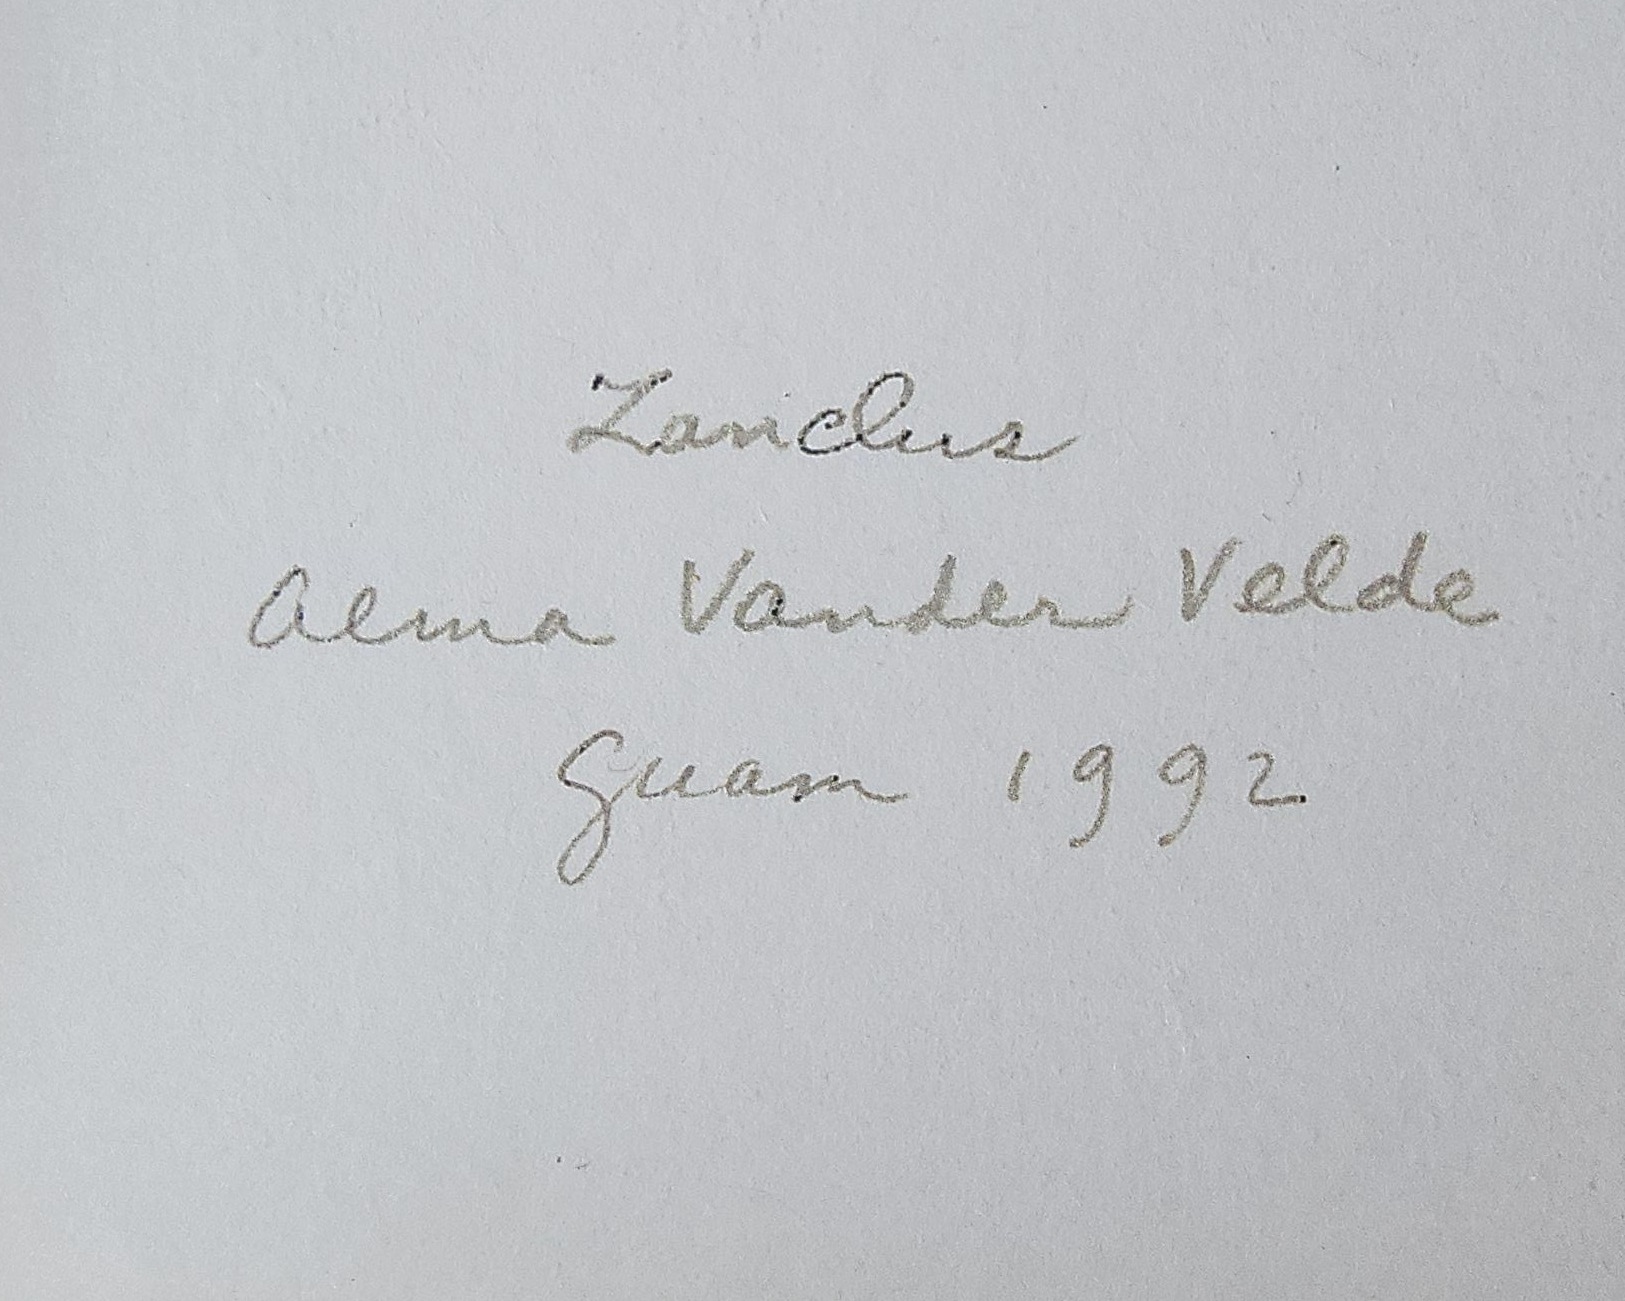 Zanclus
Alma Vander Velde
Guam 1992